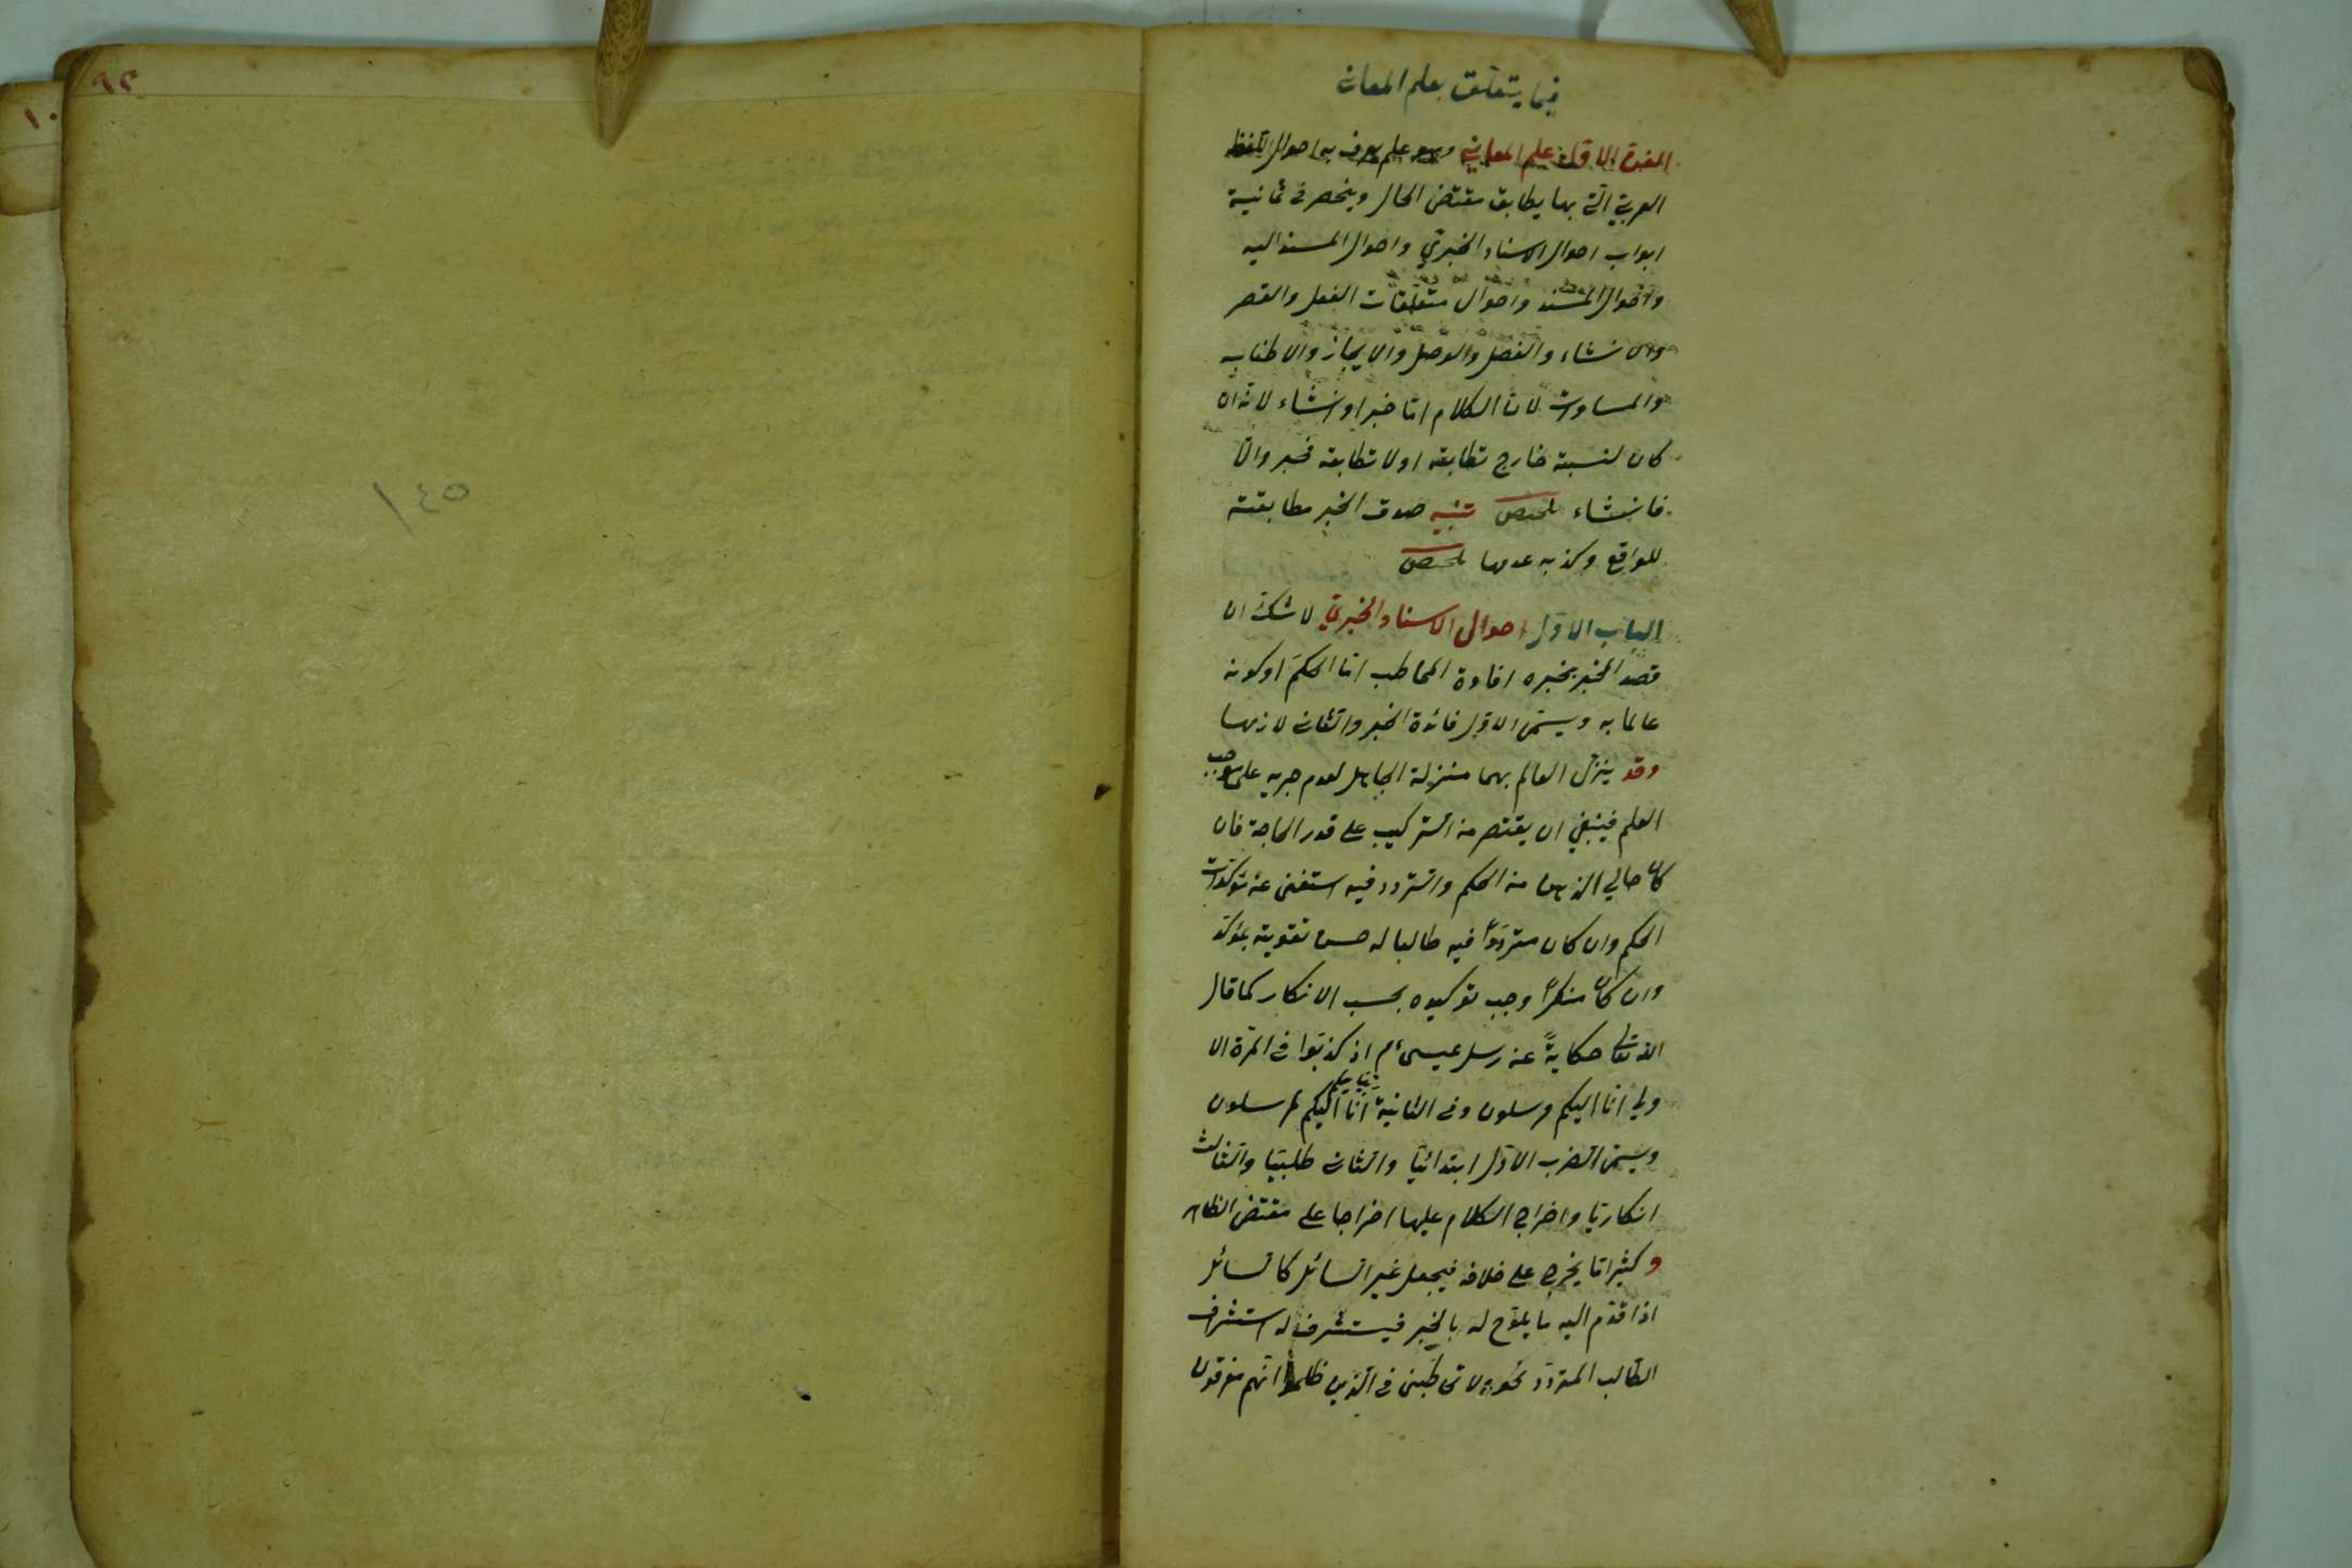 فيما يتعلق بعلم المعاني
الفن الاول علم المعاني وهو علم يعرف به احوال اللفظ
العربي التي بها يطابق مقتضى الحال وينحصر في ثمانية
ابواب احوال الاسناد الخبري واحوال المسند اليه
واحوال المسند واحوال متعلقات الفعل والقصر
والانشاء والفصل والوصل والايجاز والاطناب
والمساوات لانّ الكلام امّا خبر او انشاء لانه ان
كان لنسبته خارج تطابقه او لا تطابقه فخبر والّا
فانشاء تلخيص تنبيه صدق الخبر مطابقته
للواقع وكذبه عدمها تلخيص
الباب الاوّل احوال الاسناد الخبري لا شكّ ان
قصد المخبر بخبره افادة المخاطب امّا الحكمَ او كونه
عالما به ويسمّى الاوّل فائدة الخبر والثاني لازمها
وقد ينزّل العالم بهما منزلة الجاهل لعدم جريه على موجب
العلم فينبغي ان يقتصر من التركيب على قدر الحاجة فان
كان خالي الذهن من الحكم والتردد فيه استغنى عن مؤكدات
الحكم وان كان متردّدًا فيه طالبا له حسن تقويته بمؤكّد
وان كان منكرًا وجب توكيده بحسب الانكار كما قال
الله تعالى حكايةً عن رسل عيسى ءم اذ كذّبوا في المرة الا
ولى انّا اليكم مرسلون وفي الثانية ربنا يعلم انّا اليكم لمرسلون
ويسمّى الضرب الاوّل ابتدائيّا والثاني طلبيّا والثالث
انكاريّا واخراج الكلام عليها اخراجا على مقتضى الظاهر
وكثيرا ما يخرج على خلافه فيجعل غير السائل كالسائل
اذا قدّم اليه ما يلوّح له بالخبر فيستشرف له استشراف
الطالب المتردّد نحو ولا تخاطبني في الذين ظلموا انّهم مغرقون
٩٢
١٤٥